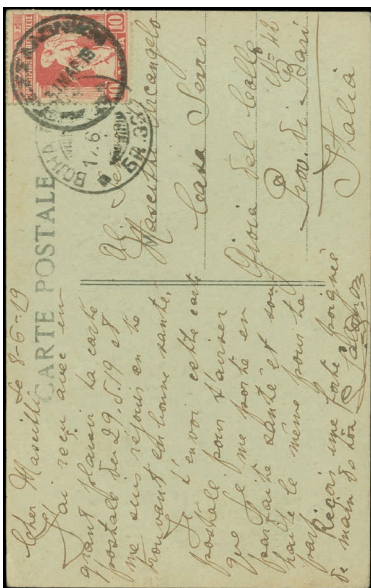 CARTE POSTALE
le 8-6-19
Cher Mascitti
J'ai reçu avec un
grand plaisir ta carte
postale du 29.5.19 et
me suis réjouis en te
trouvant en bonne santé.
Je t'envoi cette carte
postale pour t'aviser
que je me porte en
parfaite santé et
le même pour toi
Reçois une forte poignée
de main de ton
Mascitti Arcangelo
Casa Serro
Gioia del Colle
N= 48
Prov. di Bari
Italia
10